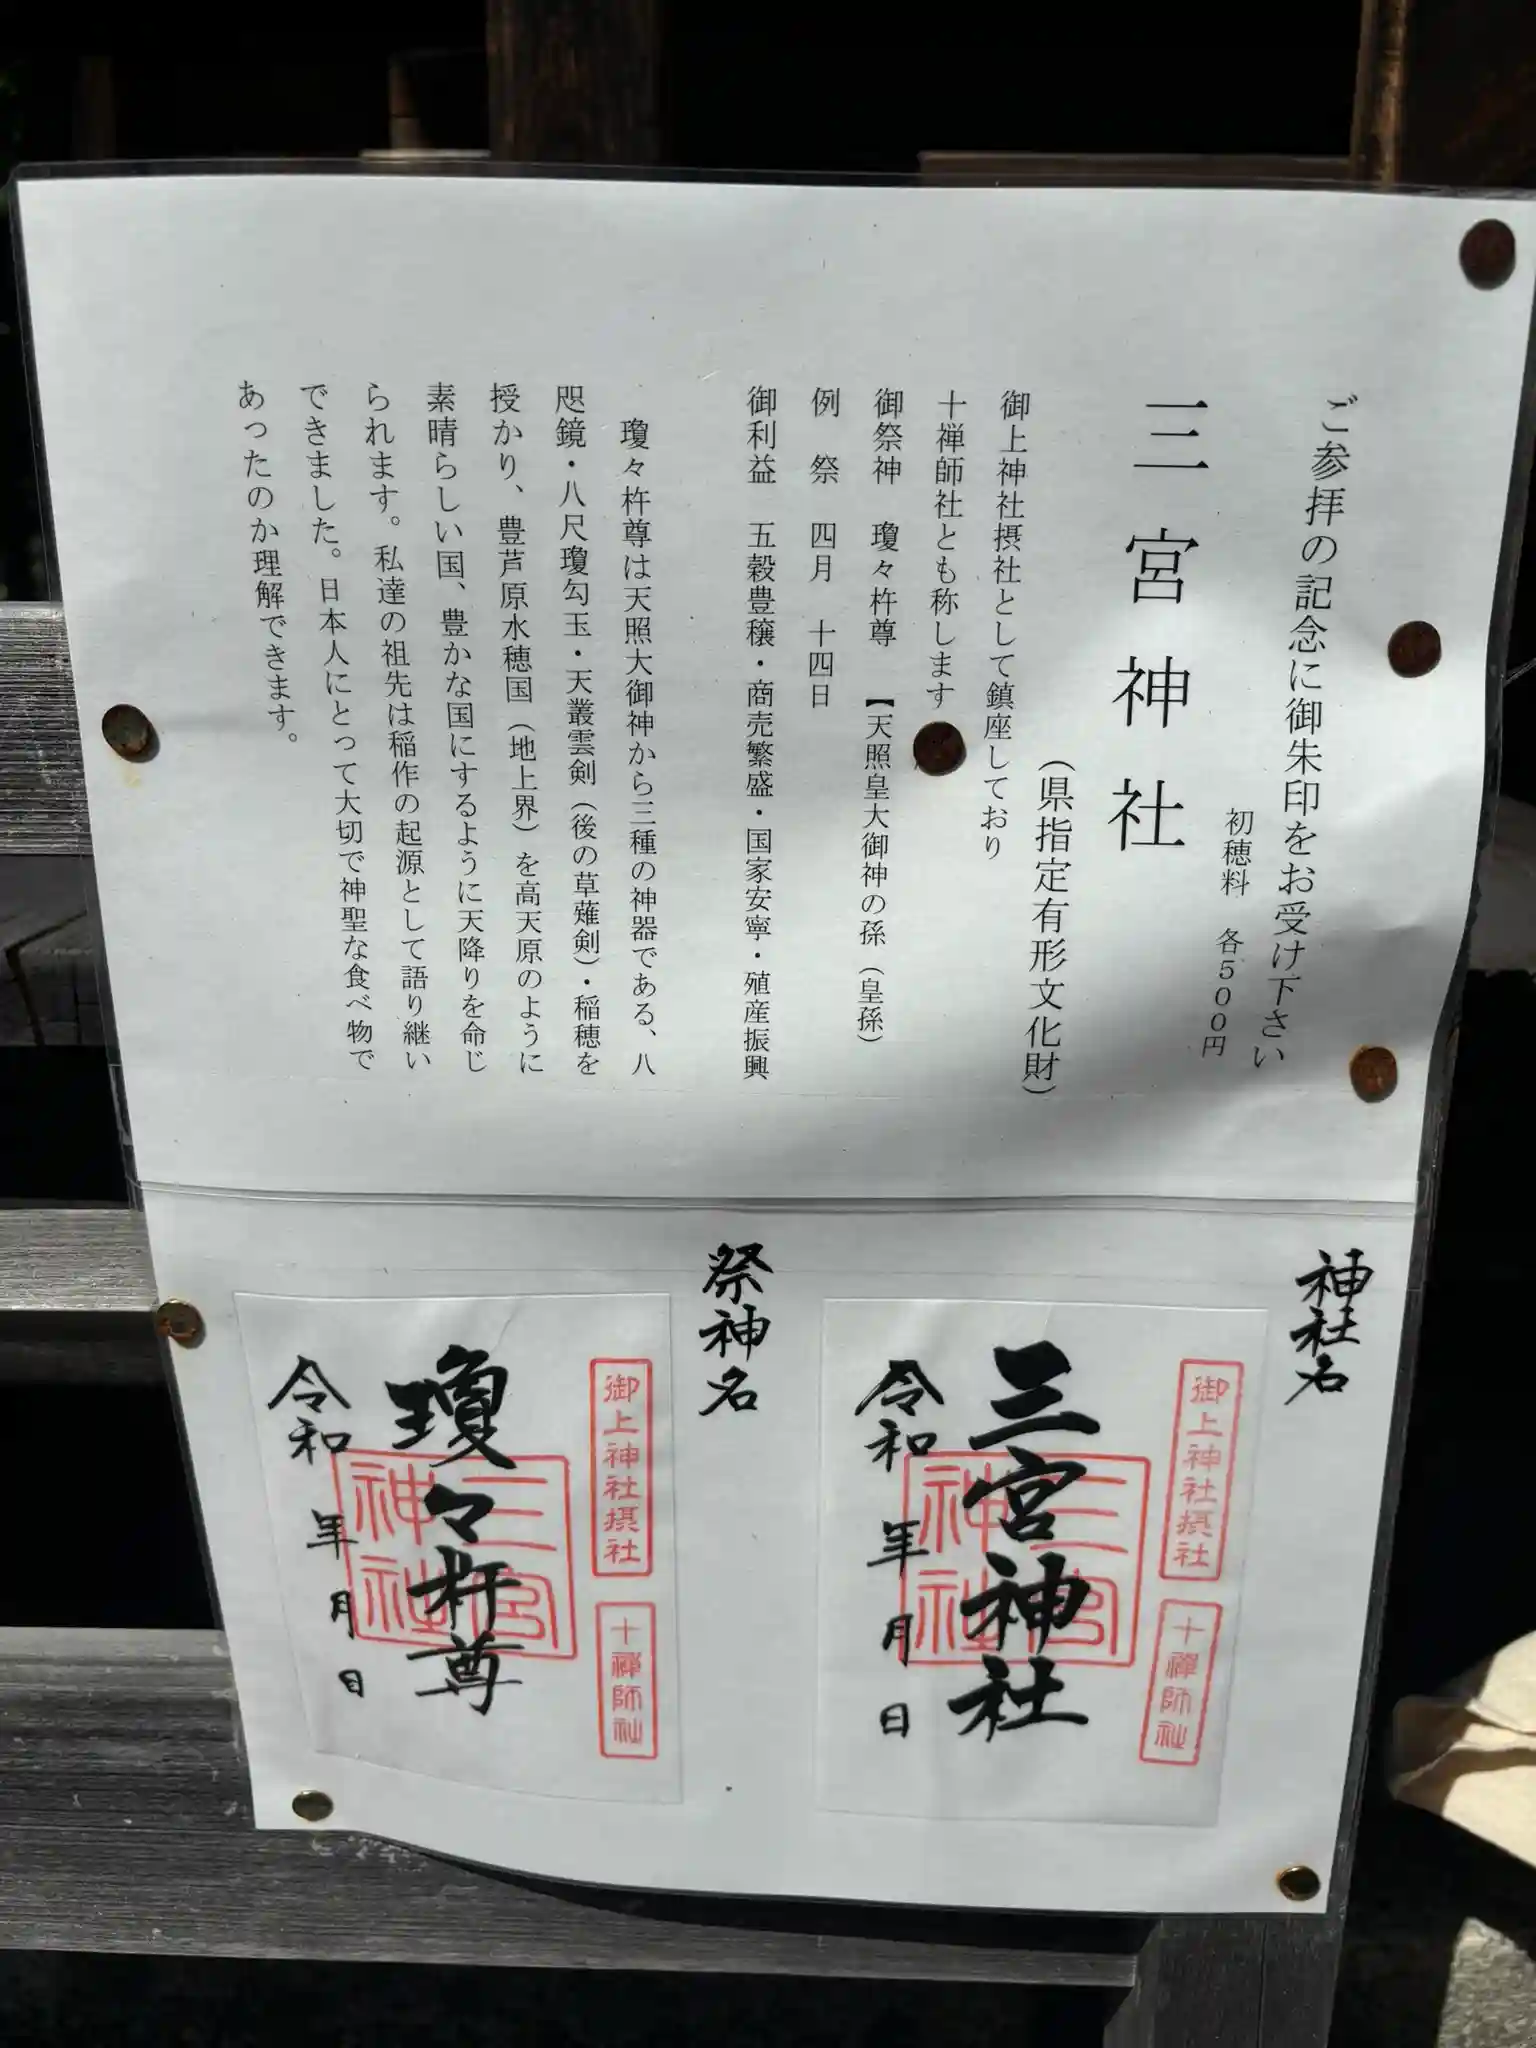 ご参拝の記念に御朱印をお受け下さい
初穂料 各500円
三宮神社
(県指定有形文化財)
御上神社摂社として鎮座しており
十禅師社とも称します
御祭神 瓊々杵尊 【天照皇大御神の孫(皇孫)
例 祭 四月 十四日
御利益 五穀豊穣・商売繁盛・国家安寧・殖産振興
瓊々杵尊は天照大御神から三種の神器である、八
咫鏡・八尺瓊勾玉・天叢雲剣(後の草薙剣)・稲穂を
授かり、豊芦原水穂国(地上界)を高天原のように
素晴らしい国、豊かな国にするように天降りを命じ
られます。私達の祖先は稲作の起源として語り継い
できました。日本人にとって大切で神聖な食べ物で
あったのか理解できます。
神社名
御上神社摂社
十禅師社
三宮神社
三宮神社
令和 年 月 日
祭神名
御上神社摂社
十禅師社
瓊々杵尊
三宮神社
令和 年 月 日